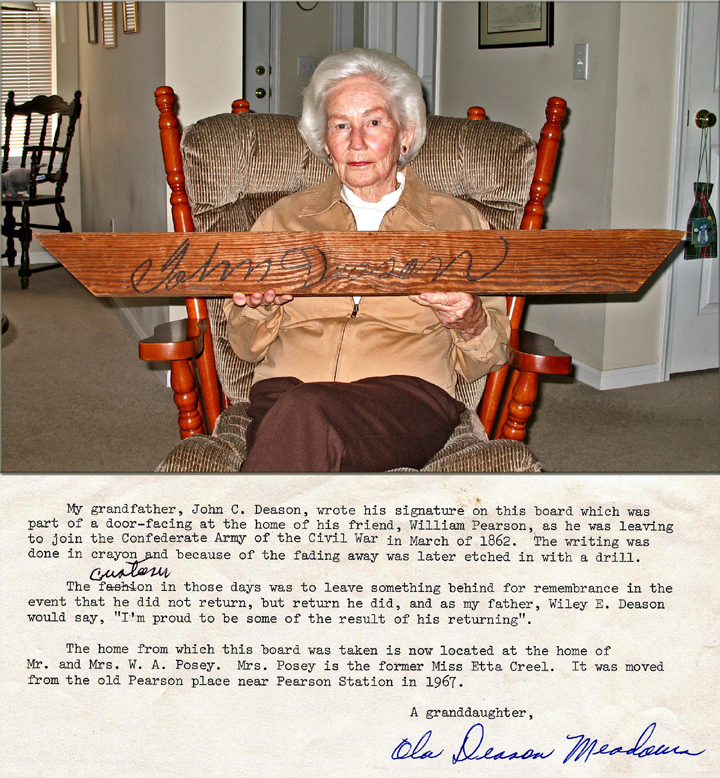 John Deason
My grandfather, John C. Deason, wrote his signature on this board which was
part of a door-facing at the home of his friend, William Pearson, as he was leaving
to join the Confederate Army of the Civil War in March of 1862. The writing was
done in crayon and because of the fading away was later etched in with a drill.
custom
The fashion in those days was to leave something behind for remembrance in the
event that he did not return, but return he did, and as my father, Wiley E. Deason
would say, "I'm proud to be some of the result of his returning".
The home from which this board was taken is now located at the home of
Mr. and Mrs. W. A. Posey. Mrs. Posey is the former Miss Etta Creel. It was moved
from the old Pearson place near Pearson Station in 1967.
A granddaughter,
Ola Deason Meadows